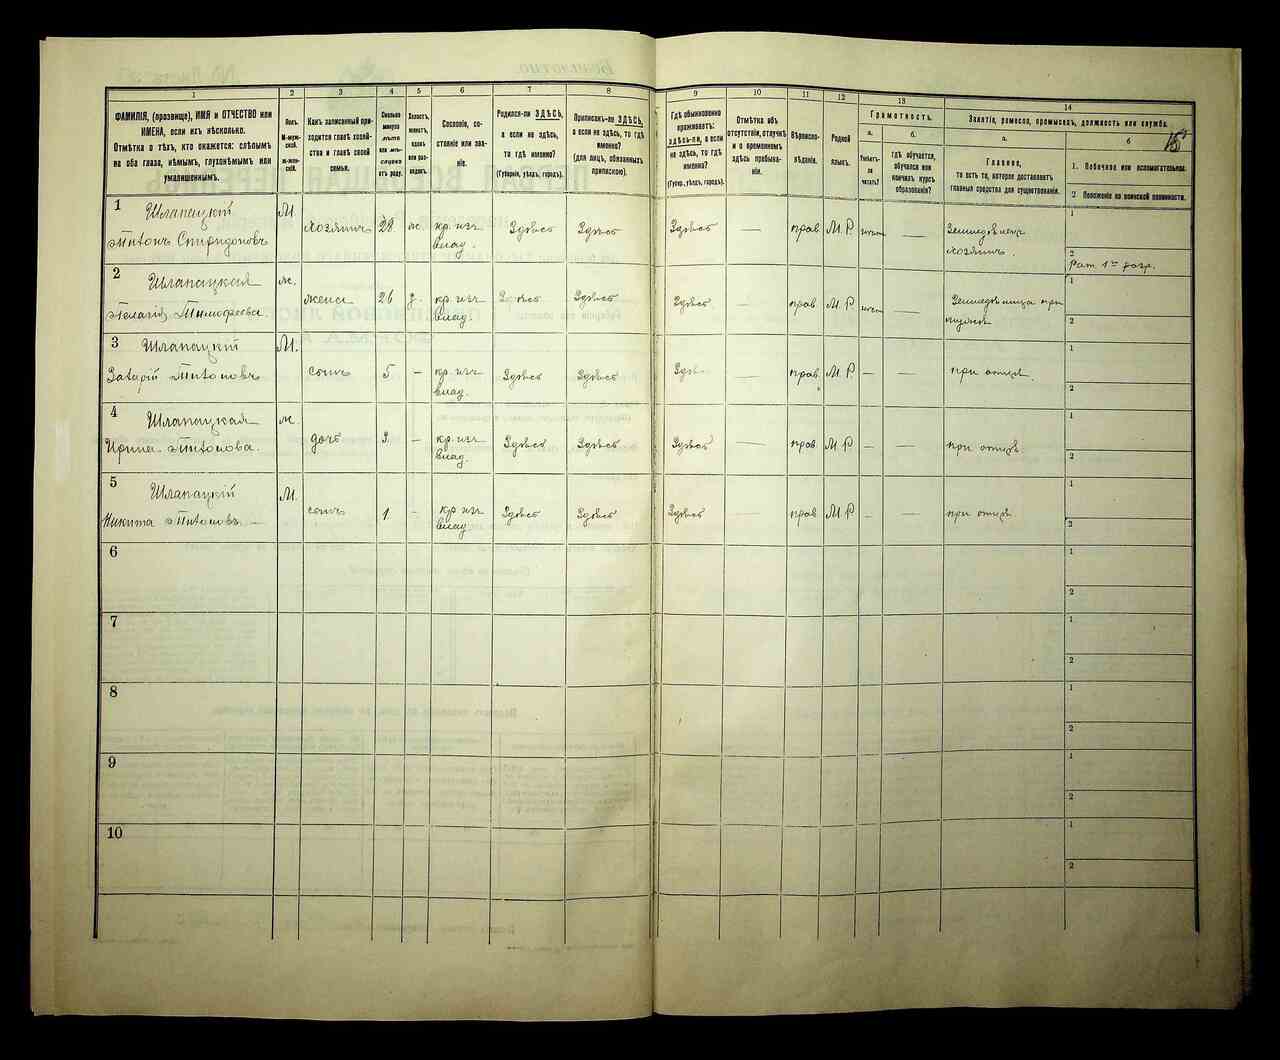 1 2 3 4 5 6 7 8 9 10 11 12 13 14
ФАМИЛІЯ, (прозвище), ИМЯ и ОТЧЕСТВО или
ИМЕНА, если ихъ нѣсколько.
Отмѣтка о тѣхъ, кто окажется: слѣпымъ
на оба глаза, нѣмымъ, глухонѣмымъ или
умалишеннымъ.
Полъ.
М-муж-
ской.
ж-жен-
скій.
Какъ записанный при-
ходится главѣ хозяй-
ства и главѣ своей
семьи.
Сколько
минуло
лѣтъ
или мѣ-
сяцевъ
отъ роду.
Холостъ,
женатъ,
вдовъ
или раз-
веденъ.
Сословіе, со-
стояніе или зва-
ніе.
Родился-ли ЗДѢСЬ,
а если не здѣсь,
то гдѣ именно?
(Губернія, уѣздъ, городъ).
Приписанъ-ли ЗДѢСЬ,
а если не здѣсь, то гдѣ
именно?
(для лицъ, обязанныхъ
припискою).
Гдѣ обыкновенно
проживаетъ:
здѣсь-ли, а если
не здѣсь, то гдѣ
именно?
(Губер., уѣздъ, городъ).
Отмѣтка объ
отсутствіи, отлучкѣ
и о временномъ
здѣсь пребыва-
ніи.
Вѣроиспо-
вѣданіе.
Родной
языкъ.
Грамотность.
а. б.
Умѣетъ-
ли
читать?
гдѣ обучается,
обучался или
кончилъ курсъ
образованія?
Занятіе, ремесло, промыселъ, должность или служба.
а. б
Главное,
то есть то, которое доставляетъ
главныя средства для существованія.
1. Побочное или вспомогательное.
2 Положеніе по воинской повинности.
1 Шлапацкій М. 1
Титонъ Спиридоновъ хозяинъ 28 ж кр. изъ Здѣсь Здѣсь Здѣсь — прав М. Р. —
влад. хозяинъ. 2
2 Шлапацкая ж. 1
Пелагія Тимофеева жена 26 кр. изъ Здѣсь Здѣсь — прав М. Р. — при
влад. мужѣ 2
3 Шлапацкій М. 1
Захарій Титоновъ сынъ 5 — кр. изъ Здѣсь Здѣсь — прав М. Р. — — при отцѣ.
влад. 2
4 Шлапацкая ж. 1
Ирина Титонова. дочь 3. — кр. изъ Здѣсь Здѣсь Здѣсь — прав М. Р. — — при отцѣ.
влад. 2
5 Шлапацкій М. 1
Никита Титоновъ. — сынъ 1. — кр. изъ Здѣсь Здѣсь Здѣсь — прав М. Р. — — при отцѣ.
влад 2
6 1
2
7 1
2
8 1
2
9 1
2
10 1
2